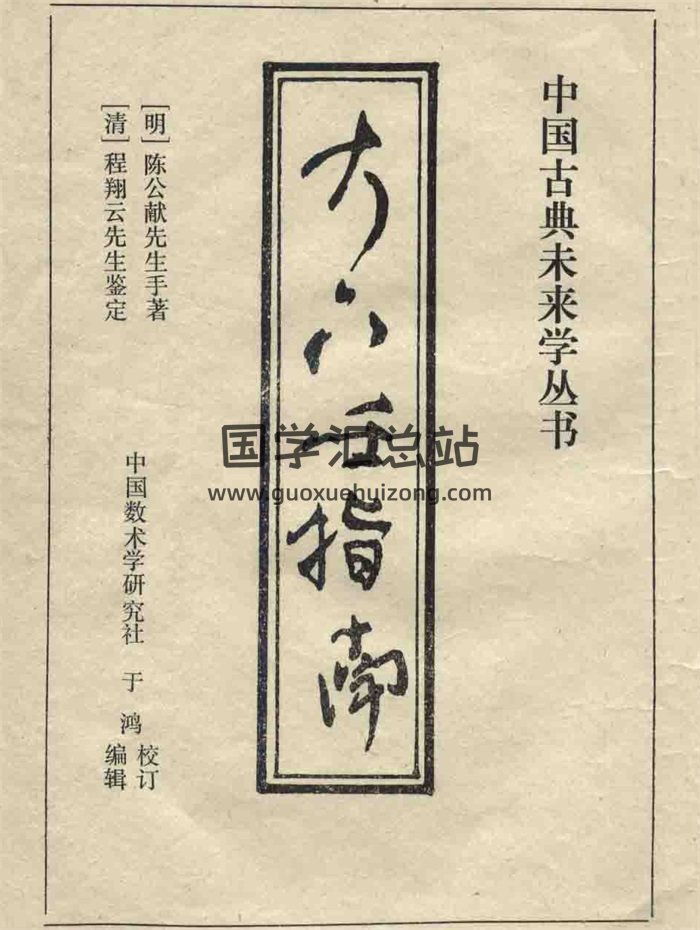 中国古典未来学丛书
大六壬指南
[明]陈公献先生手著
[清]程翔云先生鉴定
中国数术学研究社 于鸿 校订
编辑
国学汇总站
www.guoxuehuizong.com